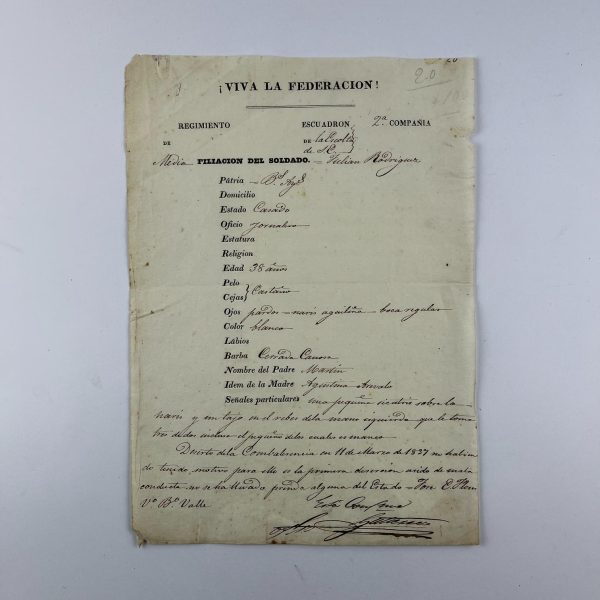 20
2.0
¡VIVA LA FEDERACION!
REGIMIENTO ESCUADRON 2.ª COMPAÑIA
DE DE la Escolta
de S E
Media FILIACION DEL SOLDADO. – Julian Rodriguez
Pátria – B.s Ay.s
Domicilio
Estado Casado
Oficio Jornalero
Estatura
Religion
Edad 38 años
Pelo
Cejas Castaño
Ojos pardos – naris aguileña – boca regular
Color blanco
Lábios
Barba Cerrada Canosa
Nombre del Padre Martin
Idem de la Madre Agustina
Señales particulares una pequeña sicatris sobre la
naris y un tajo en el rebes de la mano izquierda que le toma
tres dedos incluso el pequeño de los cuales es manco
Decerto de la Combalecencia en 11 de Marzo de 1837 no habien
do tenido motivo para ello es la primera decercion a sido de mala
conducta no se ha llevado prenda alguna del Estado – Jose E.
V.º B.º Valle Esta Conforme